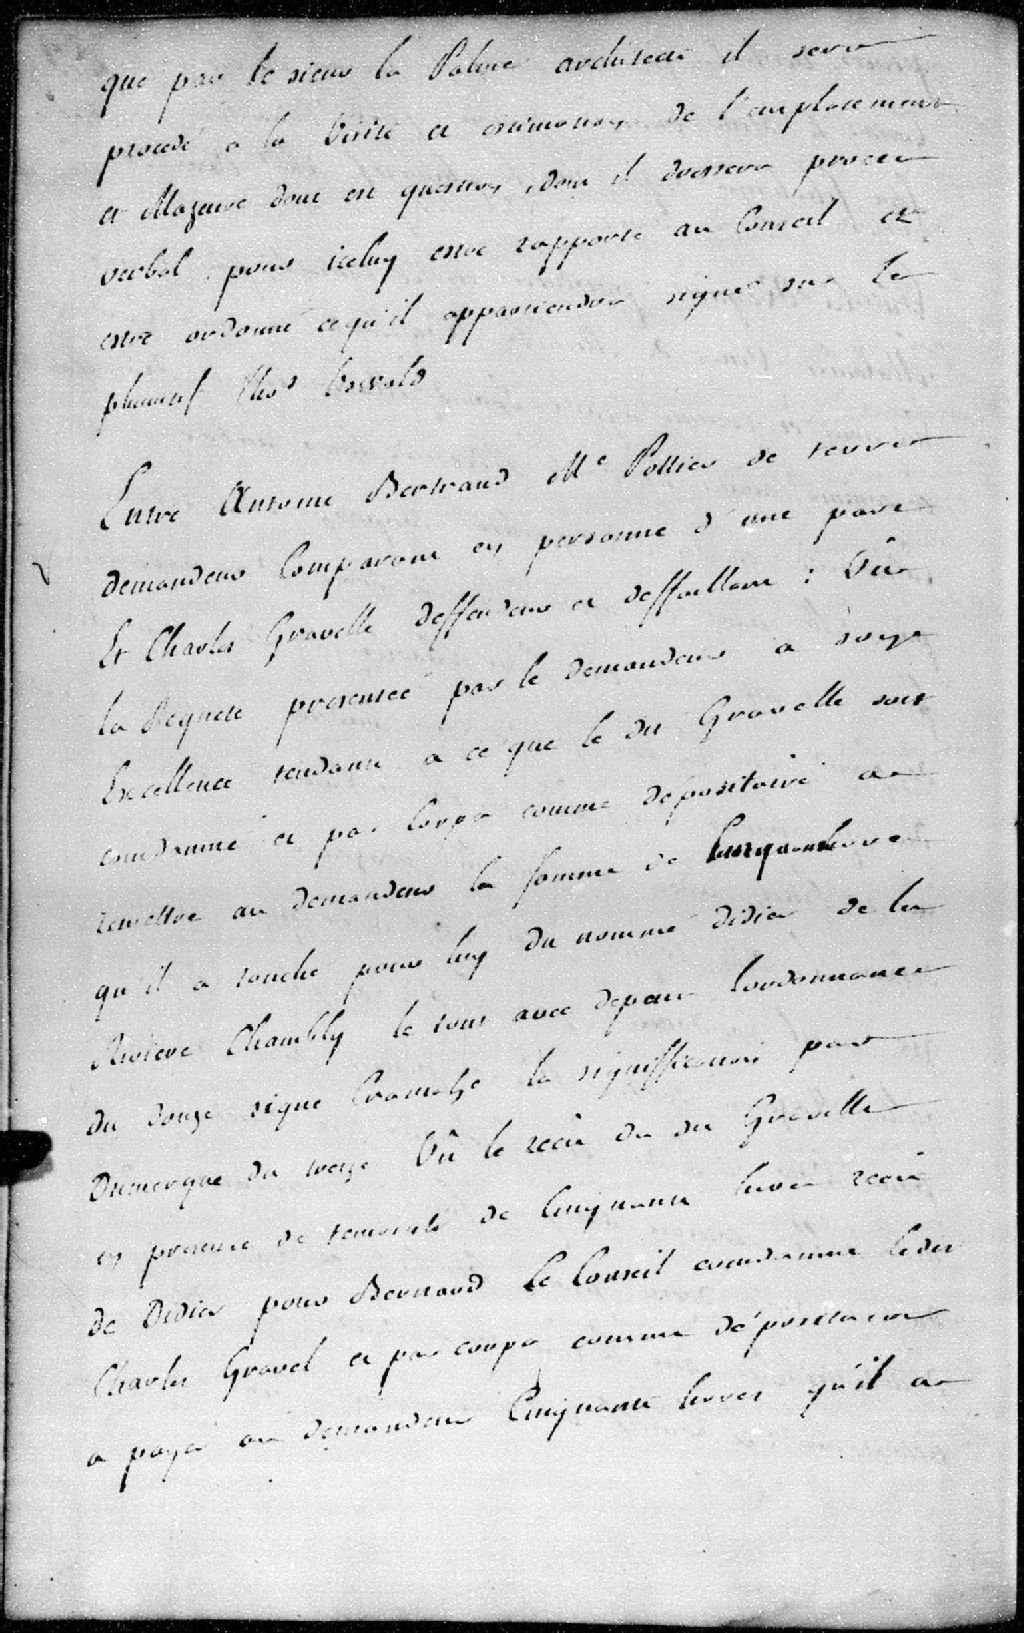 que par le sieur la Palme architecte il sera
procedé a la visite et estimation de l'emplacement
et Mazure dont est question, dont il dressera procez
verbal pour iceluy estre rapporté au Conseil et
estre ordonné ce qu'il appartiendra signé sur le
plumitif
Entre Antoine Bertrand Me Pottier de terre
demandeur Comparant en personne d'une part
Et Charles Gravelle deffendeur et deffaillant : Vû
la Requete presentée par le demandeur a son
Excellence tendante a ce que le dit Gravelle soit
condamné et par Corps comme dépositaire a
remettre au demandeur la somme de Cinquante livres
qu'il a touché pour luy du nommé Didier de la
Riviere Chambly le tout avec depens Lordonnance
du douze signé Cramahé la signiffication par
Dumergue du treize Vû le recû du dit Gravelle
en presence de temoins de Cinquante livres recû
de Didier pour Bertrand Le Conseil condamne ledit
Charles Gravel et par corps comme dépositaire
a payer au demandeur Cinquante livres qu'il a